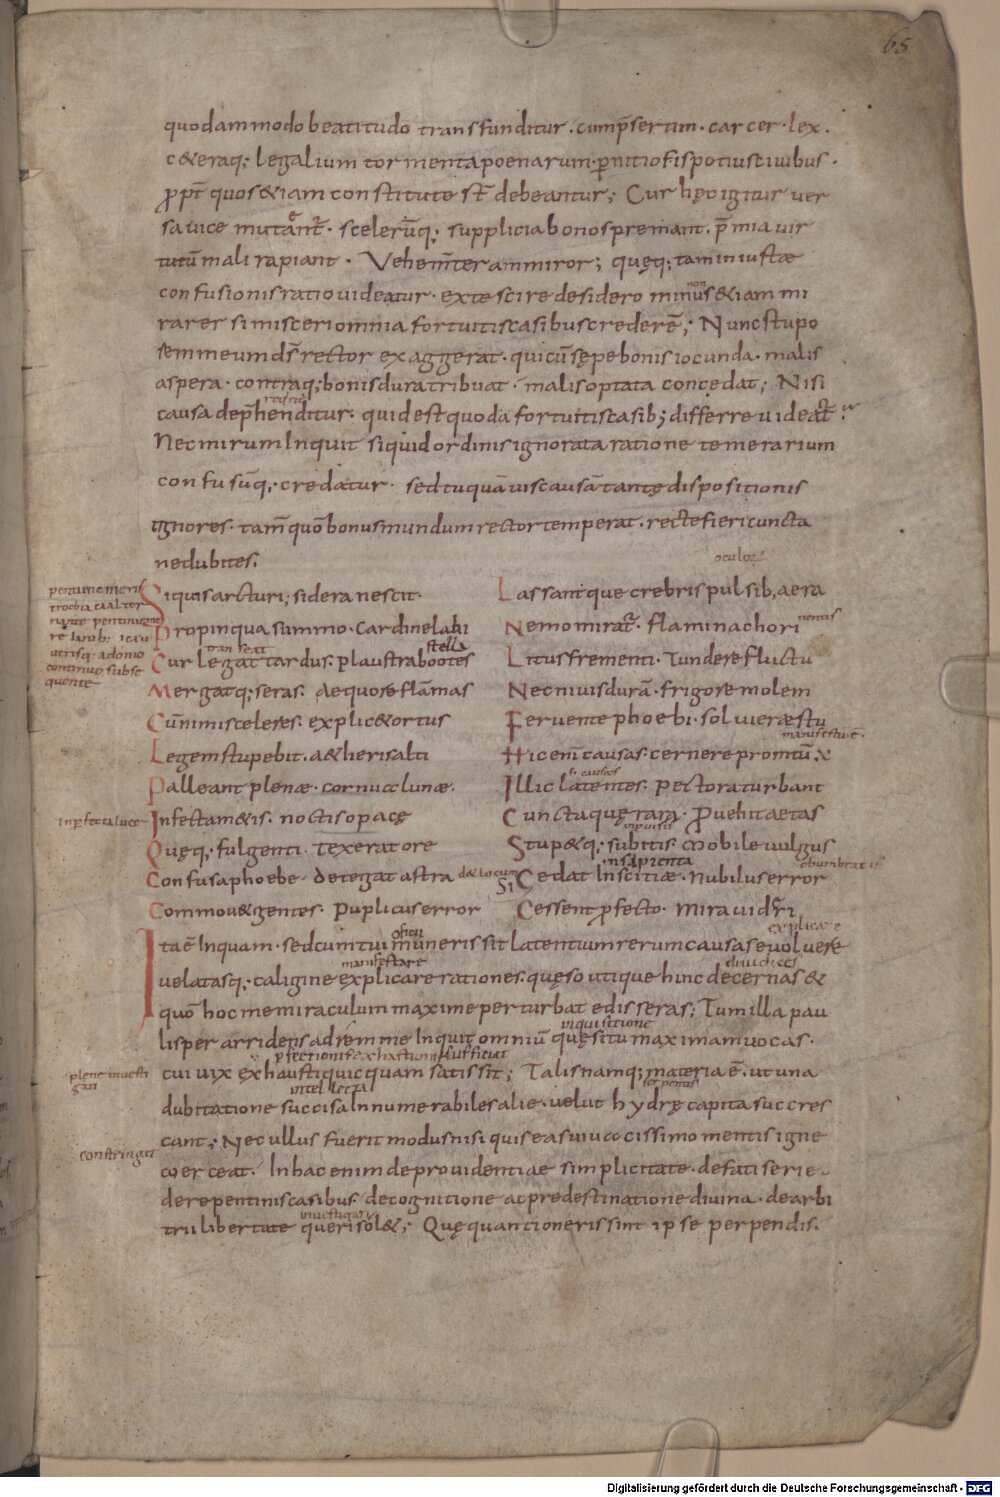 65
quodammodo beatitudo transfunditur · cump̄sertim · carcer · lex ·
c&eraq; legalium tormenta poenarum · pnitiosis potius civibus ·
ꝓpt̄ quos &iam constitute st̄ debeantur; Cur hęc igitur ver
sa vice mutant̄ · scelerūq; supplicia bonos premant · p̄mia vir
tutū mali rapiant · Vehem̄ter ammiror; quęq; tam iniustae
confusionis ratio videatur · ex te scire desidero minus &iam mi
non
rarer si misceri omnia fortuitis casibus crederē; Nunc stupo
rem meum d̄s rector exaggerat · qui cū sępe bonis iocunda · malis
aspera · contraq; bonis dura tribuat · malis optata concedat; Nisi
causa dep̄henditur · quid est quod a fortuitis casib; differre videat̄
Nec mirum Inquit si quid ordinis ignorata ratione temerarium
confusūq; · credatur · sed tu quāvis causā tantę dispositionis
ignores · tam̄ quō bonus mundum rector temperat · recte fieri cuncta
ne dubites.
pentimemeris
trochaica alter
continuo subse
quente
Si quis arcturi; sidera nescit ·
Propinqua summo · cardine labi
tran seat
stella
Cur legat tardus · plaustra bootes
Mergatq; seras · aequore flāmas
Cū nimis celeres · explic& ortus
Legem stupebit · a&heris alti
Palleant plenae · cornu lunae ·
inpfecta luce
Infecta m&is · noctis opacę
Quęq; · fulgenti · texerat ore
Confusa phoebe · detegat astra
Commou& gentes · Puplicus error
Lassantque crebris pulsib; aera
ventus
Nemo mirat̄ · flamina chori
Litus frementi · Tundere fluctu
Nec nivis durā · frigore molem
Fervente phoebi · solvier aestu
manifestū ē ·
Hic enī causas · cernere promtū ē
Illic latentes · pectora turbant
Cuncta quę rara · Provehit aetas
Stup&q; · subitis mobile vulgus
insapienta
obumbrat is
Si Cędat Inscitiae · nubilus error
Cessent ꝓfecto · mira vid̄ri
explicare
Ita ē Inquam · sed cum tui muneris sit latentium rerum causas evolvere
oficii
manifestare
velatasq; · caligine explicare rationes · quęso uti que hinc decernas &
quō hoc me miraculum maxime perturbat edisseras; Tum illa pau
lisper arridens ad rem me Inquit omniū quęsitu maximam vocas ·
inquisitione
cui vix exhausti quicquam satis sit; Talis namq; materia ē · ut una
plene investi
gari
intellecta
serpentis
dubitatione succisa Innumerabiles alie · velut hydrę capita succres
cant; Nec ullus fuerit modus nisi quis eas vivacissimo mentis igne
constringat
coerceat · In hac enim de providentiae simplicitate · de fati serie ·
de repentinis casibus · de cognitione ac predestinatione divina · de arbi
investigari
trii libertate queri sol&; Quę quanti oneris sint ipse perpendis.
Digitalisierung gefördert durch die Deutsche Forschungsgemeinschaft - DFG